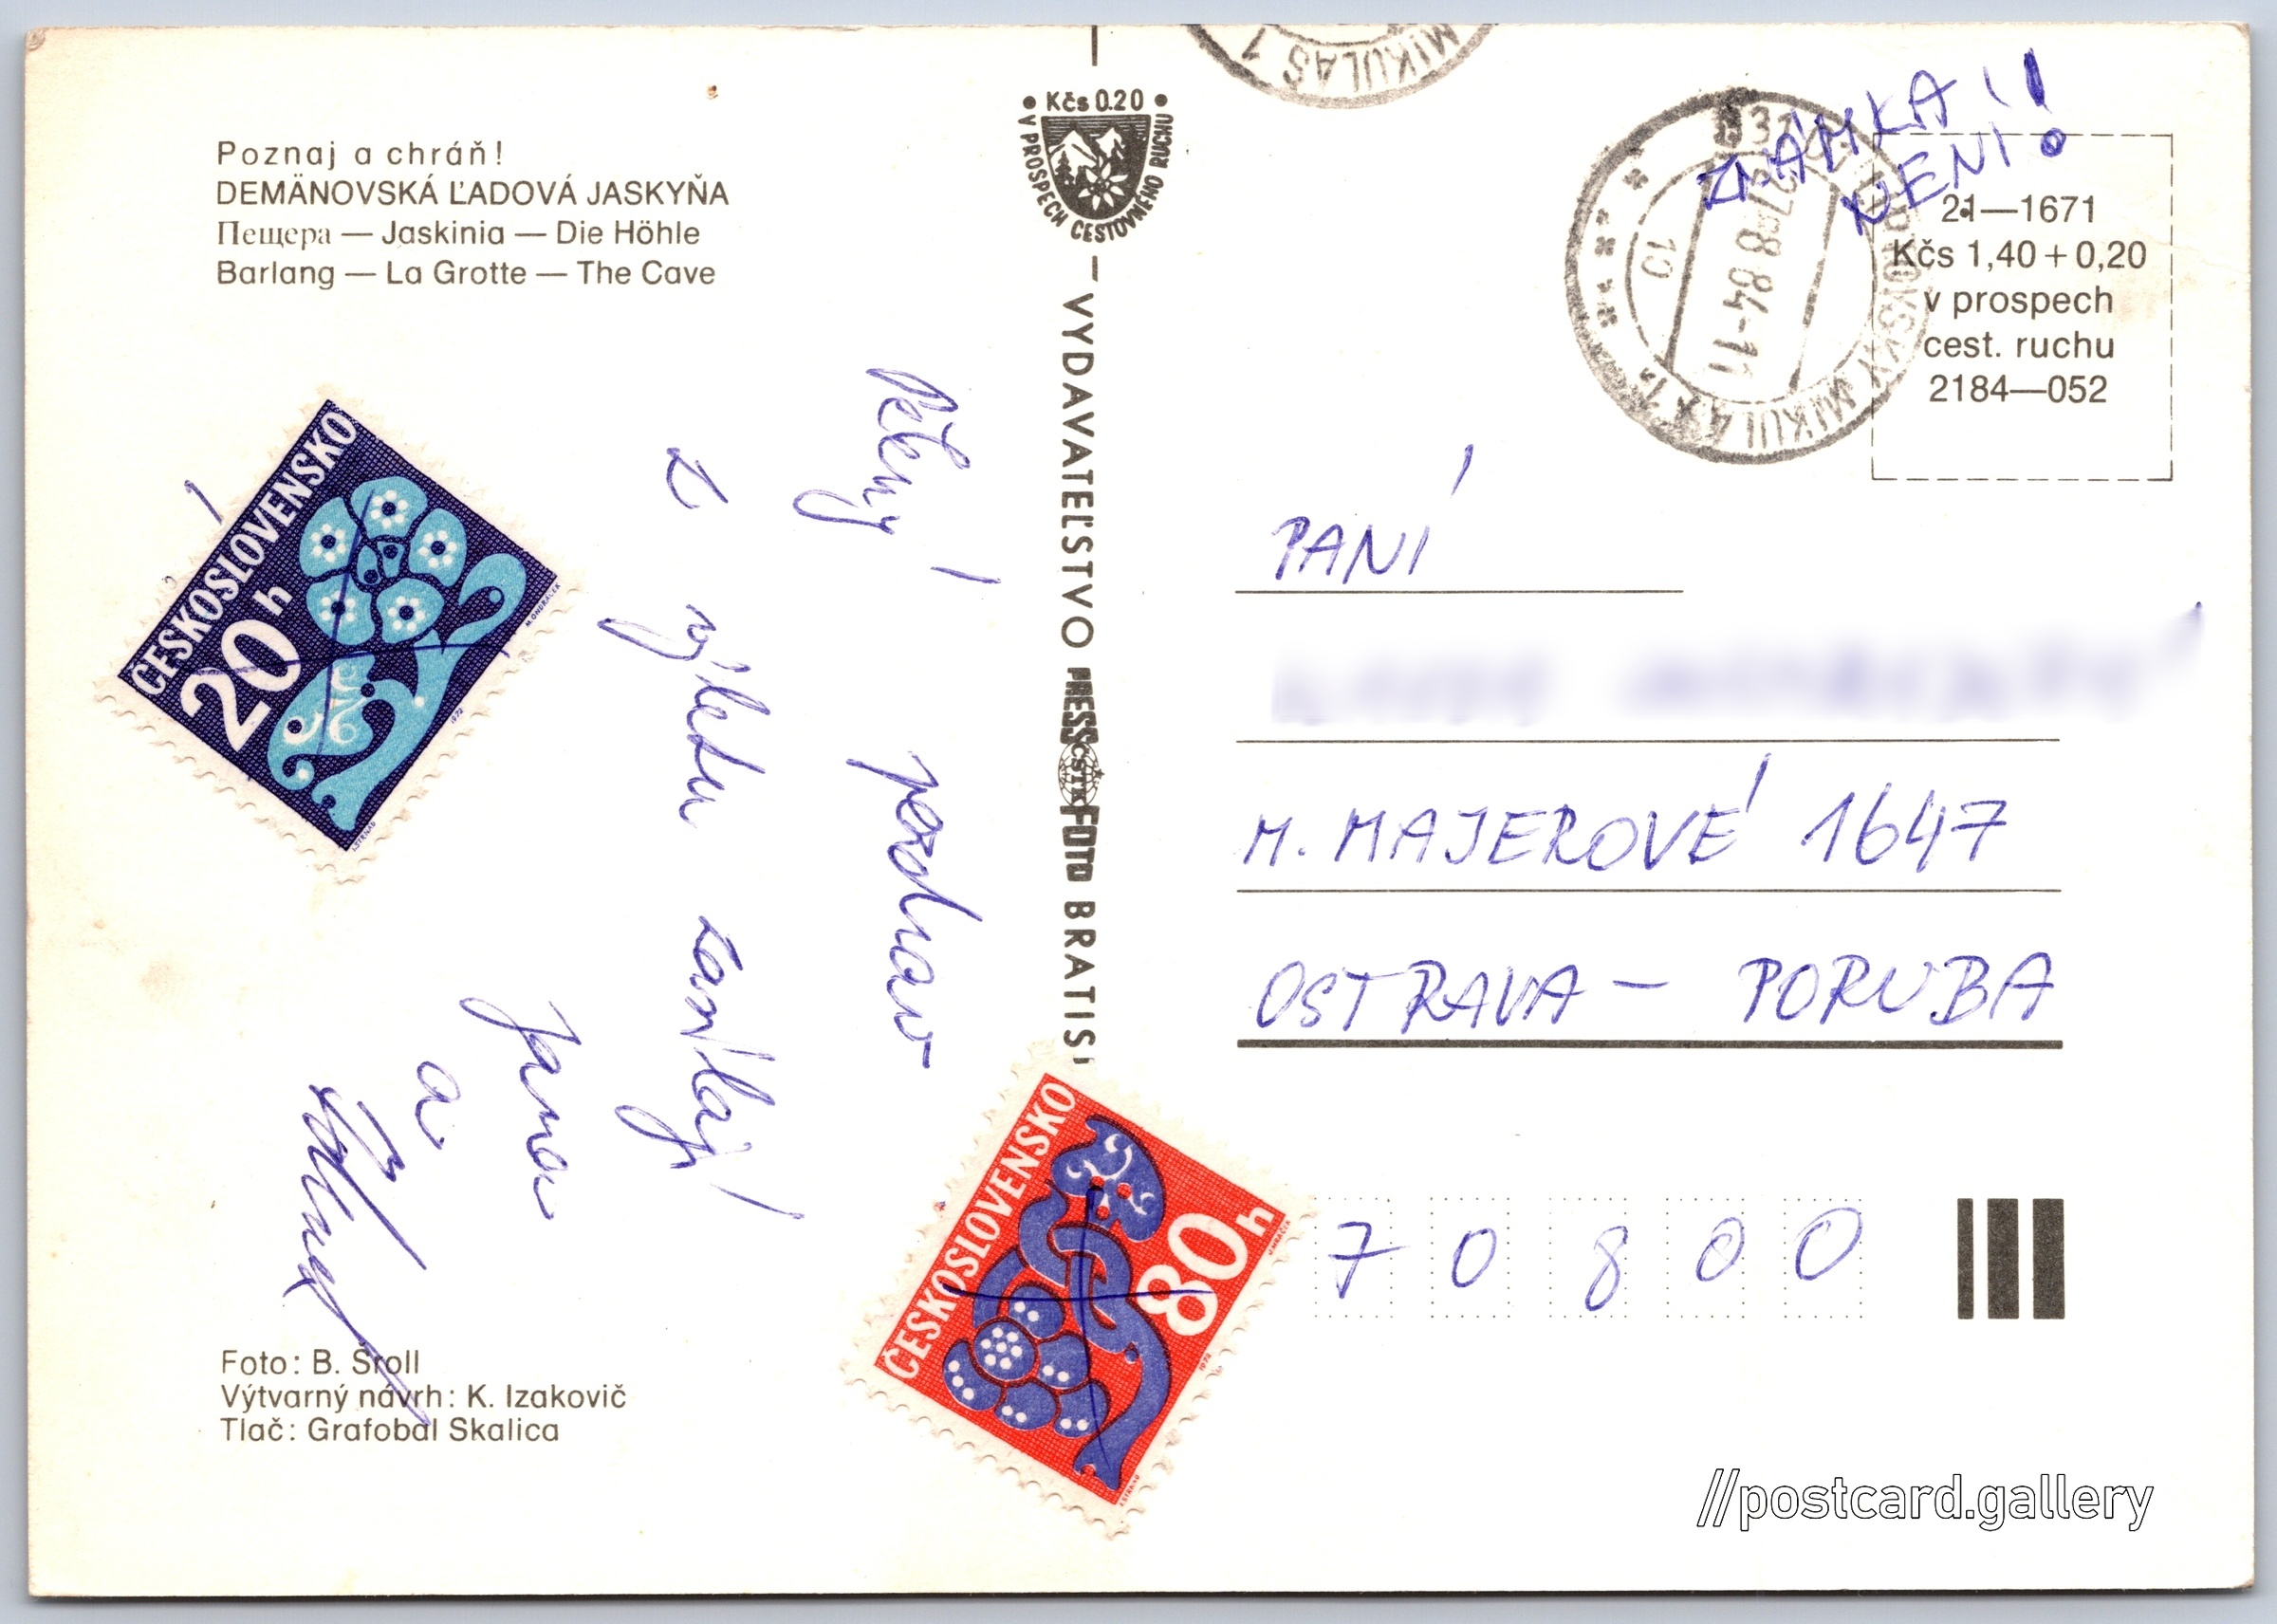 Poznaj a chráň!
DEMÄNOVSKÁ ĽADOVÁ JASKYŇA
Пещера — Jaskinia — Die Höhle
Barlang — La Grotte — The Cave
ČESKOSLOVENSKO
20 h
Pěkný pozdrav
z výletu zasílají
Jana
a
Foto: B. Šroll
Výtvarný návrh: K. Izakovič
Tlač: Grafobal Skalica
• Kčs 0.20 •
V PROSPECH CESTOVNÉHO RUCHU
VYDAVATEĽSTVO PRESSFOTO BRATISL
ČSTK
ČESKOSLOVENSKO
80 h
MIKULÁŠ 1
27.8.84-11
10
MIKULÁŠ 1
ZNÁMKA
NENÍ!
21—1671
Kčs 1,40 + 0,20
v prospech
cest. ruchu
2184—052
PANÍ
M. MAJEROVÉ 1647
OSTRAVA – PORUBA
70800
//postcard.gallery